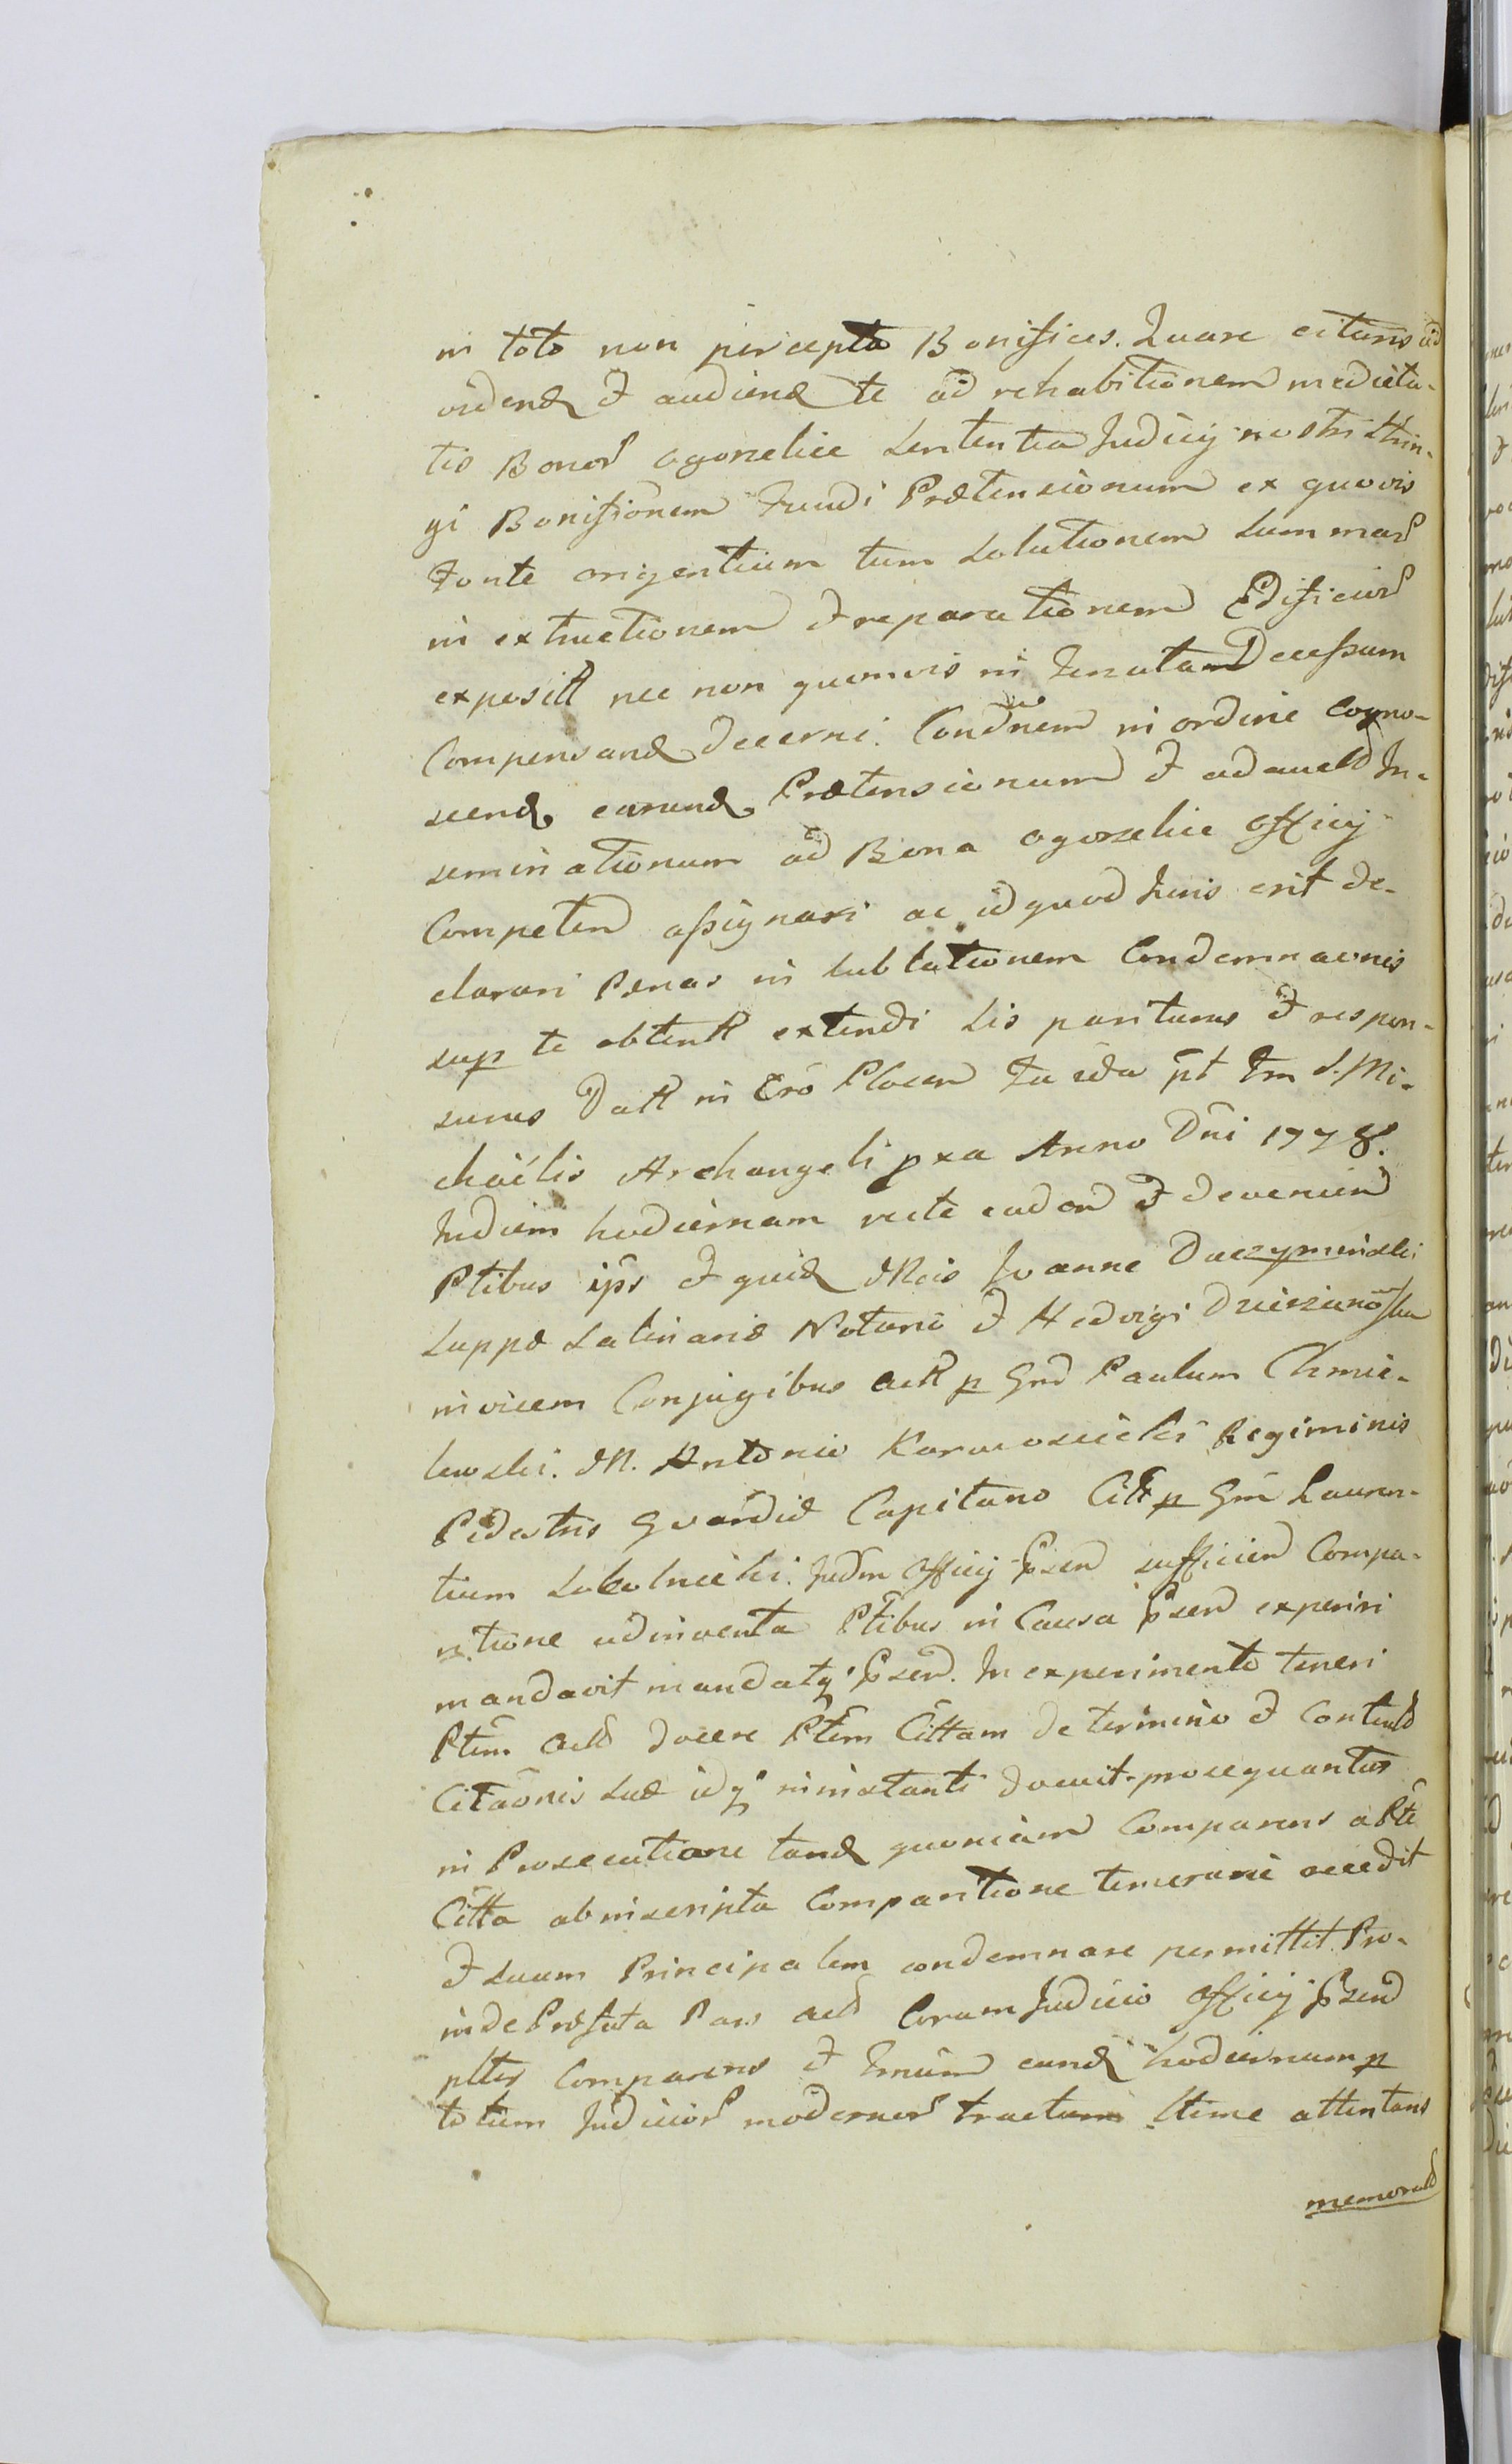 in toto non percepta Bonifices. Quare citaris ad
videnḍ et audienḍ te ad rehabitionem medieta-
tis Bonor̃ Ogorzelice Sententia Judicij nostri strin-
gi Bonifiõnem Fundi Prætensionum ex quovis
Fonte origentium tum Solutionem Summar̃
in extructionem et reparationem Ædificior̃
exposit̃ nec non quomvis in Tenuta Decessum
Compensanḍ decerni. Condñem in ordine Cogno-
scenḍ earunḍ Prætensionum et ad aucḍ In-
seminationum ad Bona Ogorzelice Officij
Competen̄ assignari ac id quod Juris erit de-
clarari Pænas in Sublationem Condemnaõnis
sup te obtent̃ extendi Sis pariturus et respon-
surus Datt in Cro Plocen̄ Fa ada pt Fm S. Mi-
chaëlis Archangeli pxa Anno Dñi 1778.
In diem hodiernam recte caden̄ et devenien̄
Ptibus ip̃s et quiḍ MRcis Joanne Duczyminski
Suppæ Salinariæ Notario et Hedvigi Dzierzanõska
invicem Conjugibus Act̃ p Gnd Paulum Chmie-
lewski. M. Antonio Karwosiecki Regiminis
Pedestris Gvardiæ Capitano Citt̃ p Gm̃ Lauren-
tium Sokolnicki. Judm Officij Psen̄ sufficien̄ Compa-
ritione adinventa Ptibus in Causa Psen̄ experiri
mandavit mandatq́ Psen̄. In experimento teneri
Ptem̃ Act̃ docere Ptem̃ Cittam de termino et Contento
Citaõnis Suæ idq́ in instanti docuit. prosequantur
in Prosecutione tanḍ quoniam Comparens a Pte
Citta ab inscripta Comparitione temerarie recedit
et suum Principalem condemnare permittit. Pro-
inde Præfata Pars Act̃ Coram Judicio Officij Psen̄
pltr Comparens et Tmũm eunḍ hodiernum p
totum Judicior̃ modernor̃ tractum Ltime attentans
memorat̃